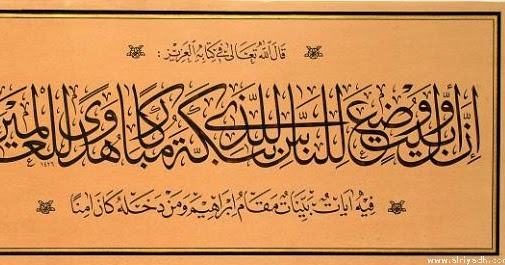 قَالَ اللهُ تَعَالىٰ فِي كِتَابِهِ العَزِيزِ :
إِنَّ أَوَّلَ بَيْتٍ وُضِعَ لِلنَّاسِ لَلَّذِي بِبَكَّةَ مُبَارَكًا وَهُدًى لِلْعَالَمِينَ
فِيهِ آيَاتٌ بَيِّنَاتٌ مَقَامُ إِبْرَاهِيمَ وَمَنْ دَخَلَهُ كَانَ آمِنًا
www.alriyadh